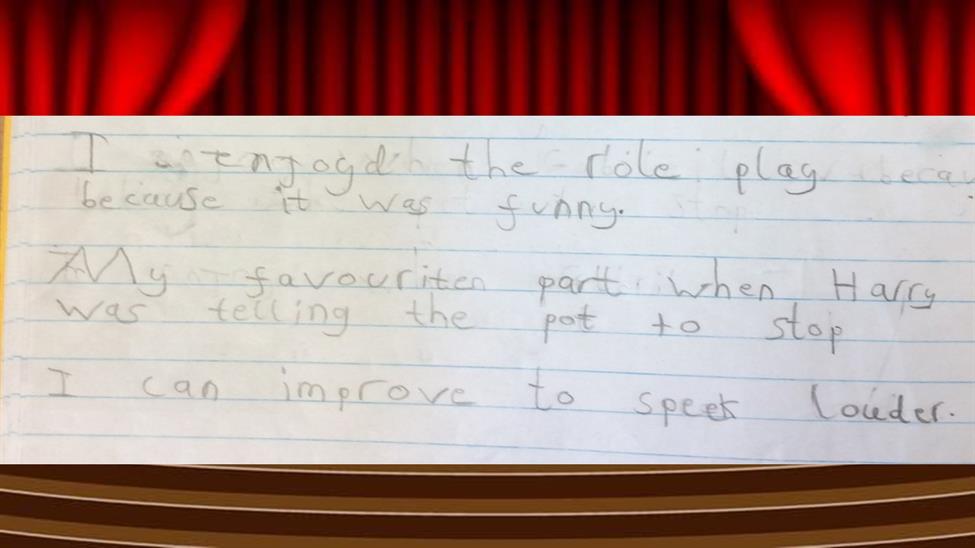 I enjogd the role play
because it was funny.
My favouriten part when Harry
was telling the pot to stop
I can improve to speek louder.